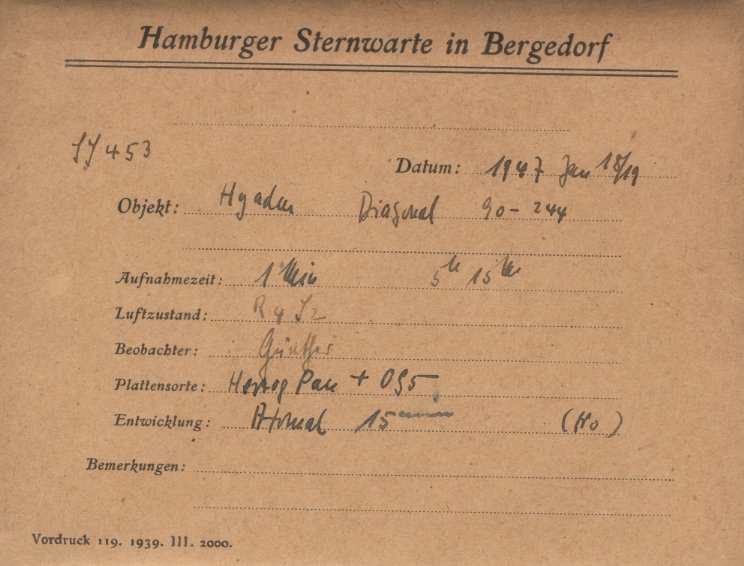 Hamburger Sternwarte in Bergedorf
453
Datum: 1947 Jan 18/19
Objekt: Hyaden Diagonal 90-244
Aufnahmezeit: 1 Min 5h 15m
Luftzustand: R4 S2
Beobachter: Günther
Plattensorte: Herzog Pan + OG5
Entwicklung: 15 min (Ho)
Bemerkungen:
Vordruck 119. 1939. III. 2000.